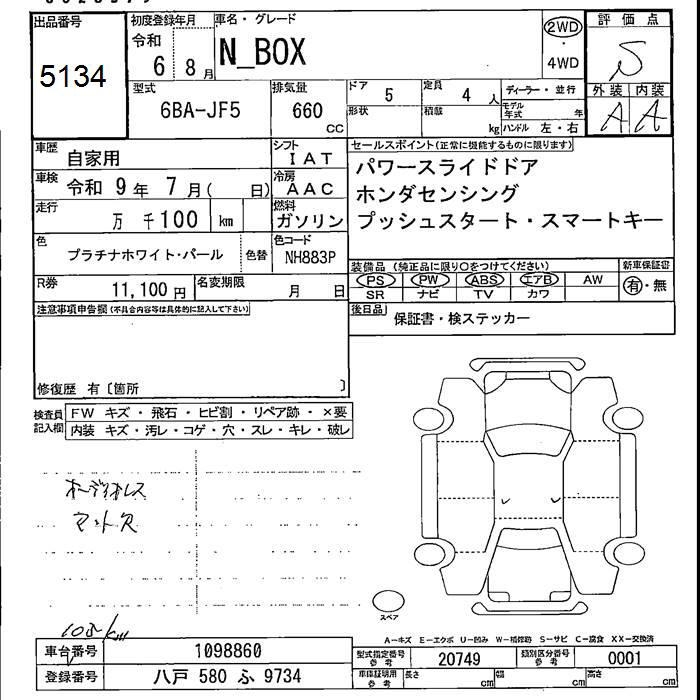 出品番号 初度登録年月 車名・グレード 2WD 評価点
5134 令和 6 8月 N_BOX ・ 4WD S
型式 排気量 ドア 5 定員 4 人 ディーラー・並行 外装 内装
6BA-JF5 660 CC 形状 積載 kg モデル年式 年 A A
ハンドル 左・右
車歴 自家用 シフト IAT セールスポイント(正常に機能するものに限ります)
車検 令和 9年 7月( 日) 冷房 AAC パワースライドドア
走行 万 千100 km 燃料 ガソリン ホンダセンシング
プッシュスタート・スマートキー
色 プラチナホワイト・パール 色替 色コード NH883P
装備品 (純正品に限り○をつけてください) 新車保証書
R券 11,100円 名変期限 月 日 PS PW ABS エアB AW 有・無
SR ナビ TV カワ
注意事項申告欄(不具合内容等は具体的に記入して下さい) 後日品 保証書・検ステッカー
修復歴 有〔箇所 〕
検査員記入欄 FW キズ・飛石・ヒビ割・リペア跡・×要
内装 キズ・汚レ・コゲ・穴・スレ・キレ・破レ
オーディオレス
マット欠
スペア
A-キズ E-エクボ U-凹み W-補修跡 S-サビ C-腐食 XX-交換済
車台番号 1098860 型式指定番号 参考 20749 類別区分番号 参考 0001
登録番号 八戸 580 ふ 9734 車庫証明用 参考 長さ cm 幅 cm 高さ cm